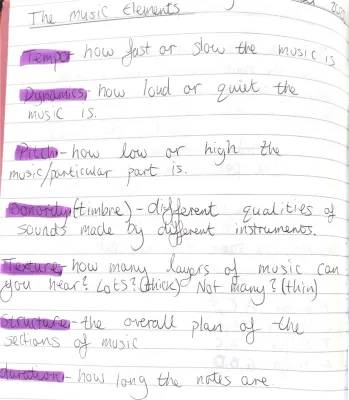 The Music Elements
Tempo - how fast or slow the music is
Dynamics - how loud or quiet the
music is.
Pitch - how low or high the
music/particular part is.
Sonority (timbre) - different qualities of
sounds made by different instruments.
Texture - how many layers of music can
you hear? Lots? (thick) Not many? (thin)
Structure - the overall plan of the
sections of music
duration - how long the notes are